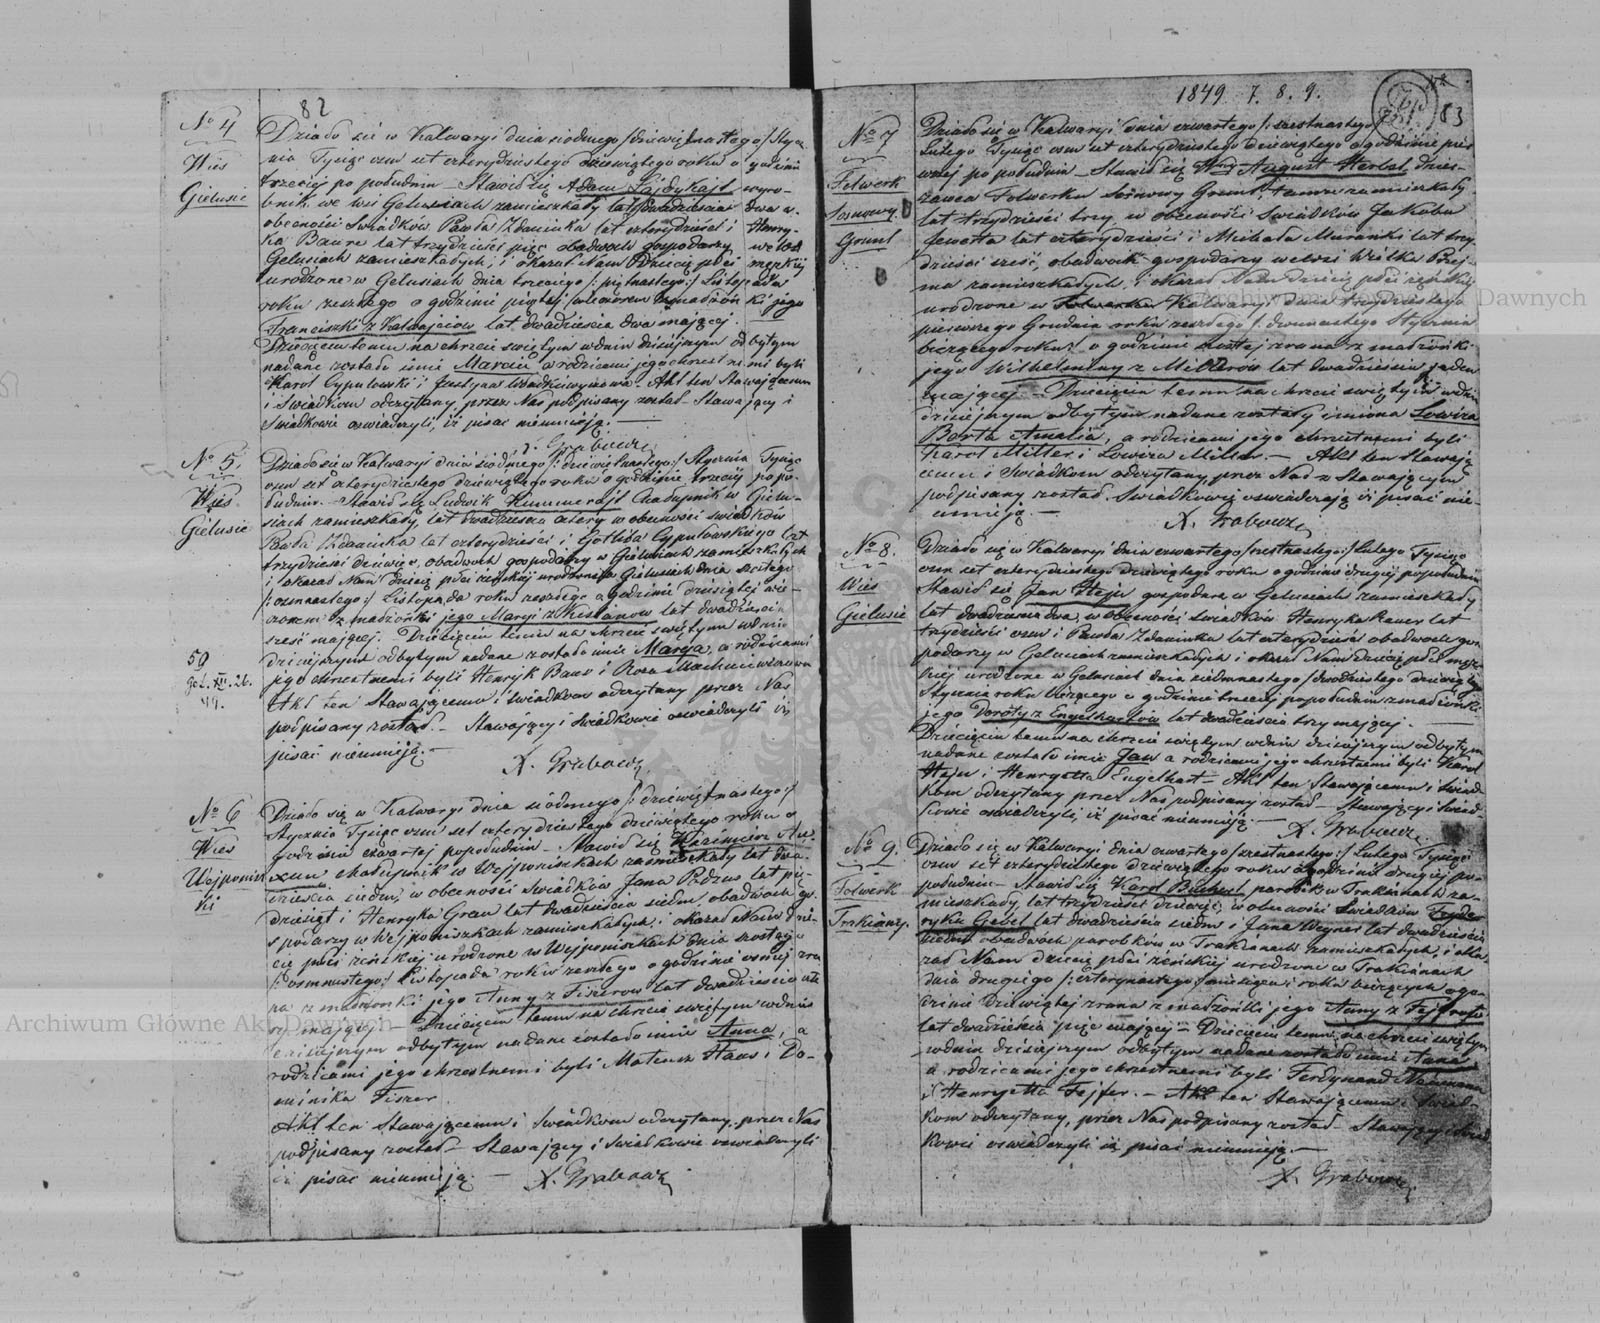 82
No 4
Wieś
Gielusie
Działo się w Kalwaryi dnia siódmego /:dziewiętnastego:/ Stycz-
nia Tysiąc osm set czterydziestego dziewiątego roku o godzinie
trzeciej po południu – Stawił się Adam wyro-
bnik we wsi Gelusiach zamieszkały lat dwadzieścia dwa w
obecności Świadków Pawła Zdaninka lat czterydzieści i Henry-
ka Baure lat trzydzieści pięć obadwóch gospodarzy we wsi
Gelusiach zamieszkałych, i okazał Nam Dziecię płci męzkiej
urodzone w Gelusiach dnia trzeciego /:piętnastego:/ Listopada
roku zeszłego o godzinie piątej wieczorem z małżonki jego
Franciszki z Kalwajciow lat dwadzieścia dwa mającej.
Dziecięciu temu na chrzcie świętym w dniu dzisiejszym odbytym
nadane zostało imie Marcin a rodzicami jego chrzestnemi byli
Karol Cypulowski i Justyna. Akt ten Stawającemu
i Świadkom odczytany przez Nas podpisany został. Stawający i
Świadkowie oświadczyli, iż pisać nieumieją. —
X. Grabow
No 5.
Wieś
Gielusie
Działo się w Kalwaryi dnia siódmego /:dziewiętnastego:/ Stycznia Tysiąc
osm set czterydziestego dziewiątego roku o godzinie trzeciej popo-
łudniu. – Stawił się Ludwik Kummerajt Chałupnik w Gielu-
siach zamieszkały, lat dwadzieścia cztery w obecności świadków
Pawła Zdaninka lat czterydzieści i Gotliba Cypulowskiego lat
trzydzieści dziewięć, obadwóch gospodarzy w Gielusiach zamieszkałych
i okazał Nam dziecię płci żeńskiej urodzone w Gielusiach dnia szóstego
/:osmnastego:/ Listopada roku zeszłego o godzinie dziesiątej wie-
czorem z małżonki jego Maryi z Kislanow lat dwadzieścia
sześć mającej. Dziecięciu temu na chrzcie świętym w dniu
dzisiejszym odbytym nadane zostało imie Marya, a rodzicami
jego chrzestnemi byli Henryk Baur i Roza
Akt ten Stawającemu i świadkom odczytany przez Nas
podpisany został. – Stawający i świadkowie oświadczyli iż
pisać nieumieją. —
X. Grabow
59
gel. XII. 26.
44.
No 6
Wieś
Wejponisz
ki
Działo się w Kalwaryi dnia siódmego /:dziewiętnastego:/
Stycznia Tysiąc osm set czterydziestego dziewiątego roku o
godzinie czwartej popołudniu – Stawił się Kazimierz
chałupnik w Wejponiszkach zamieszkały lat dwa-
dzieścia siedm, w obecności świadków Jana Podzus lat pię-
dziesiąt i Henryka Grau lat dwadzieścia siedm, obadwóch go-
spodarzy w Wejponiszkach zamieszkałych i okazał Nam dzie-
cię płci żeńskiej urodzone w Wejponiszkach dnia szóstego
/:osmnastego:/ Listopada roku zeszłego o godzinie osmej zra-
na z małżonki jego Anny z Fiszerow lat dwadzieścia czte-
ry mającej – Dziecięciu temu na chrzcie świętym w dniu
dzisiejszym odbytym nadane zostało imie Anna, a
rodzicami jego chrzestnemi byli Mateusz Haus i Do-
minika Fiszer
Akt ten Stawającemu i Świadkom odczytany przez Nas
podpisany został – Stawający i Świadkowie oświadczyli
iż pisać nieumieją. — X. Grabow
1849 7. 8. 9.
83
No 7
Folwark
Sosnowy
Grunt
Działo się w Kalwaryi dnia czwartego /:szesnastego:/
Lutego Tysiąc osm set czterydziestego dziewiątego o godzinie pier-
wszej po południu – Stawił się August Herbst dzier-
żawca Folwarku Sosnowy Grunt, tamże zamieszkały
lat trzydzieści trzy w obecności Świadków Jakóba
Jewerta lat czterydzieści i Michała Muranki lat trzy-
dzieści sześć, obadwóch gospodarzy we wsi
zamieszkałych, i okazał Nam dziecię płci żeńskiej
urodzone w Folwarku Kalwaryi dnia trzydziestego
pierwszego Grudnia roku zeszłego /:dwunastego Stycznia
bieżącego roku:/ o godzinie szóstej zrana z małżonki
jego Wilhelminy z Millerow lat dwadzieścia jeden
mającej – Dziecięciu temu na chrzcie świętym w dniu
dzisiejszym odbytym nadane zostały imiona Lowiza
Berta Amalia, a rodzicami jego chrzestnemi byli
Karol Miller i Lowiza Miller. – Akt ten Stawają-
cemu i Świadkom odczytany przez Nas z Stawającym
podpisany został. Świadkowie oświadczają iż pisać nie-
umieją. —
X. Grabow
No 8.
Wieś
Gielusie
Działo się w Kalwaryi dnia czwartego /:szesnastego:/ Lutego Tysiąc
osm set czterydziestego dziewiątego roku o godzinie drugiej popołudniu
Stawił się Jan Hejn gospodarz w Gelusiach zamieszkały
lat dwadzieścia dwa, w obecności świadków Henryka Bauer lat
trzydzieści osm i Pawła Zdaninka lat czterydzieści obadwóch gos-
podarzy w Gelusiach zamieszkałych i okazał Nam dziecię płci męz-
kiej urodzone w Gelusiach dnia siedmnastego /:dwudziestego dziewiątego
Stycznia roku bieżącego o godzinie trzeciej popołudniu z małżonki
jego Doroty z Engelhartow lat dwadzieścia trzy mającej. —
Dziecięciu temu na chrzcie świętym w dniu dzisiejszym odbytym
nadane zostało imie Jan a rodzicami jego chrzestnemi byli Karol
Hejn i Henryetta Engelhart – Akt ten Stawającemu i Świad-
kom odczytany przez Nas podpisany został – Stawający i Świad-
kowie oświadczyli iż pisać nieumieją. —
X. Grabow
No 9.
Folwark
Trakiany.
Działo się w Kalwaryi dnia czwartego /:szesnastego:/ Lutego Tysiąc
osm set czterydziestego dziewiątego roku o godzinie drugiej po-
południu – Stawił się Karol parobek w Trakianach za-
mieszkały, lat trzydzieści dziewięć, w obecności Świadków Fryde-
ryka Gebel lat dwadzieścia siedm i Jana Wegner lat dwadzieścia
siedm obadwóch parobków w Trakianach zamieszkałych, i oka-
zał Nam dziecię płci żeńskiej urodzone w Trakianach
dnia drugiego /:czternastego:/ miesiąca i roku bieżących o go-
dzinie dziewiątej zrana z małżonki jego Anny z
lat dwadzieścia pięć mającej – Dziecięciu temu na chrzcie świętym
w dniu dzisiejszym odbytym nadane zostało imie Anna
a rodzicami jego chrzestnemi byli Ferdynand Neumann
i Henryetta Fejfer. – Akt ten Stawającemu i Świad-
kom odczytany, przez Nas podpisany został – Stawający i Świad-
kowie oświadczyli iż pisać nieumieją. —
X. Grabow
Archiwum Główne Akt Dawnych
Archiwum Główne Akt Dawnych